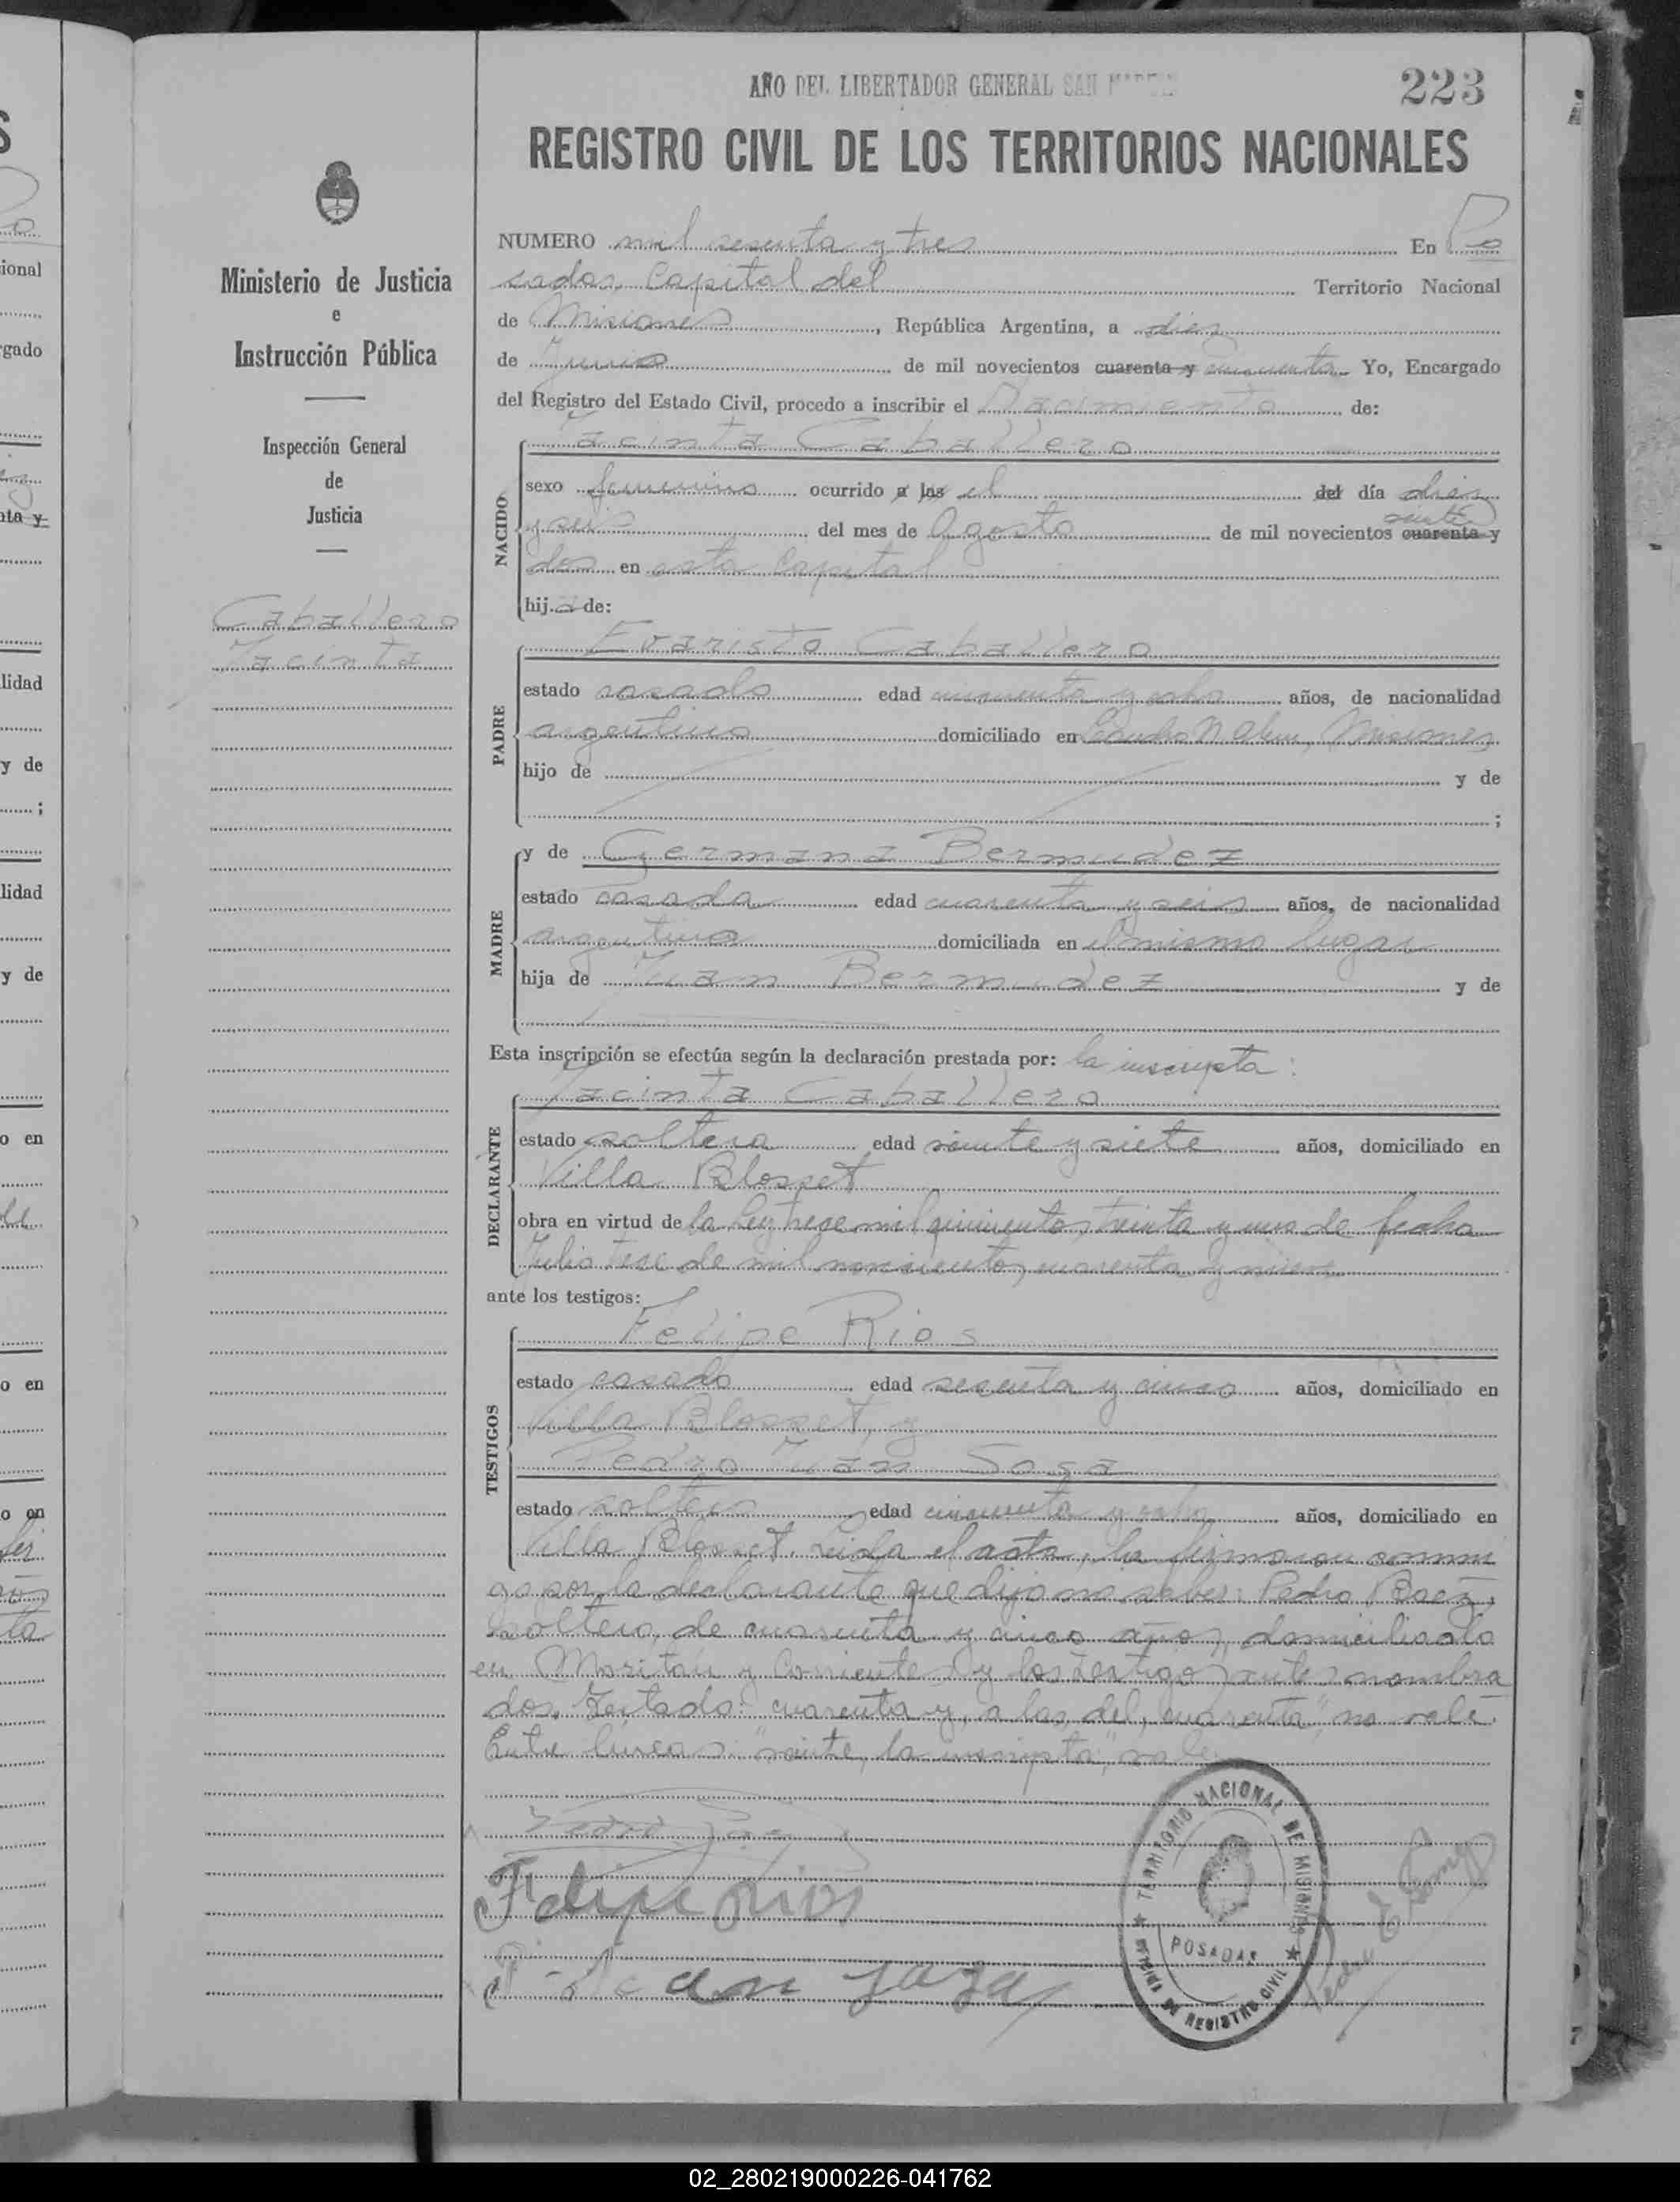 AÑO DEL LIBERTADOR GENERAL SAN MARTIN
223
REGISTRO CIVIL DE LOS TERRITORIOS NACIONALES
Ministerio de Justicia
e
Instrucción Pública
Inspección General
de
Justicia
Caballero
Jacinta
NUMERO mil sesenta y tres En Po
sadas, Capital del Territorio Nacional
de Misiones, República Argentina, a diez
de Junio de mil novecientos cuarenta y cincuenta Yo, Encargado
del Registro del Estado Civil, procedo a inscribir el Nacimiento de:
Jacinta Caballero
NACIDO
sexo femenino ocurrido a las el del día diez
y seis del mes de Agosto de mil novecientos cuarenta y veinti
dos en esta Capital
hija de:
PADRE
Evaristo Caballero
estado casado edad cincuenta y ocho años, de nacionalidad
argentino domiciliado en Leandro N. Alem, Misiones
hijo de y de
;
MADRE
y de Germana Bermudez
estado casada edad cuarenta y seis años, de nacionalidad
argentina domiciliada en el mismo lugar
hija de Juan Bermudez y de
Esta inscripción se efectúa según la declaración prestada por: la inscripta:
DECLARANTE
Jacinta Caballero
estado soltera edad veinte y siete años, domiciliado en
Villa Blosset
obra en virtud de la Ley trece mil quinientos treinta y uno de fecha
Julio trece de mil novecientos cuarenta y nueve
ante los testigos:
TESTIGOS
Felipe Rios
estado casado edad sesenta y cinco años, domiciliado en
Villa Blosset, y
Pedro Juan Sosa
estado soltero edad cincuenta y ocho años, domiciliado en
Villa Blosset. Leida el acta, la firmaron conmi
go por la declarante que dijo no saber: Pedro Baez,
soltero, de cuarenta y cinco años, domiciliado
en Maritan y Corrientes y los testigos antes nombra
dos. Testado: "cuarenta y, a las, del, cuarenta" no vale.
Entre lineas: "veinte, la inscripta", vale.
Felipe Rios
Juan Sosa
TERRITORIO NACIONAL DE MISIONES
POSADAS
OFICINA DE REGISTRO CIVIL
02_280219000226-041762